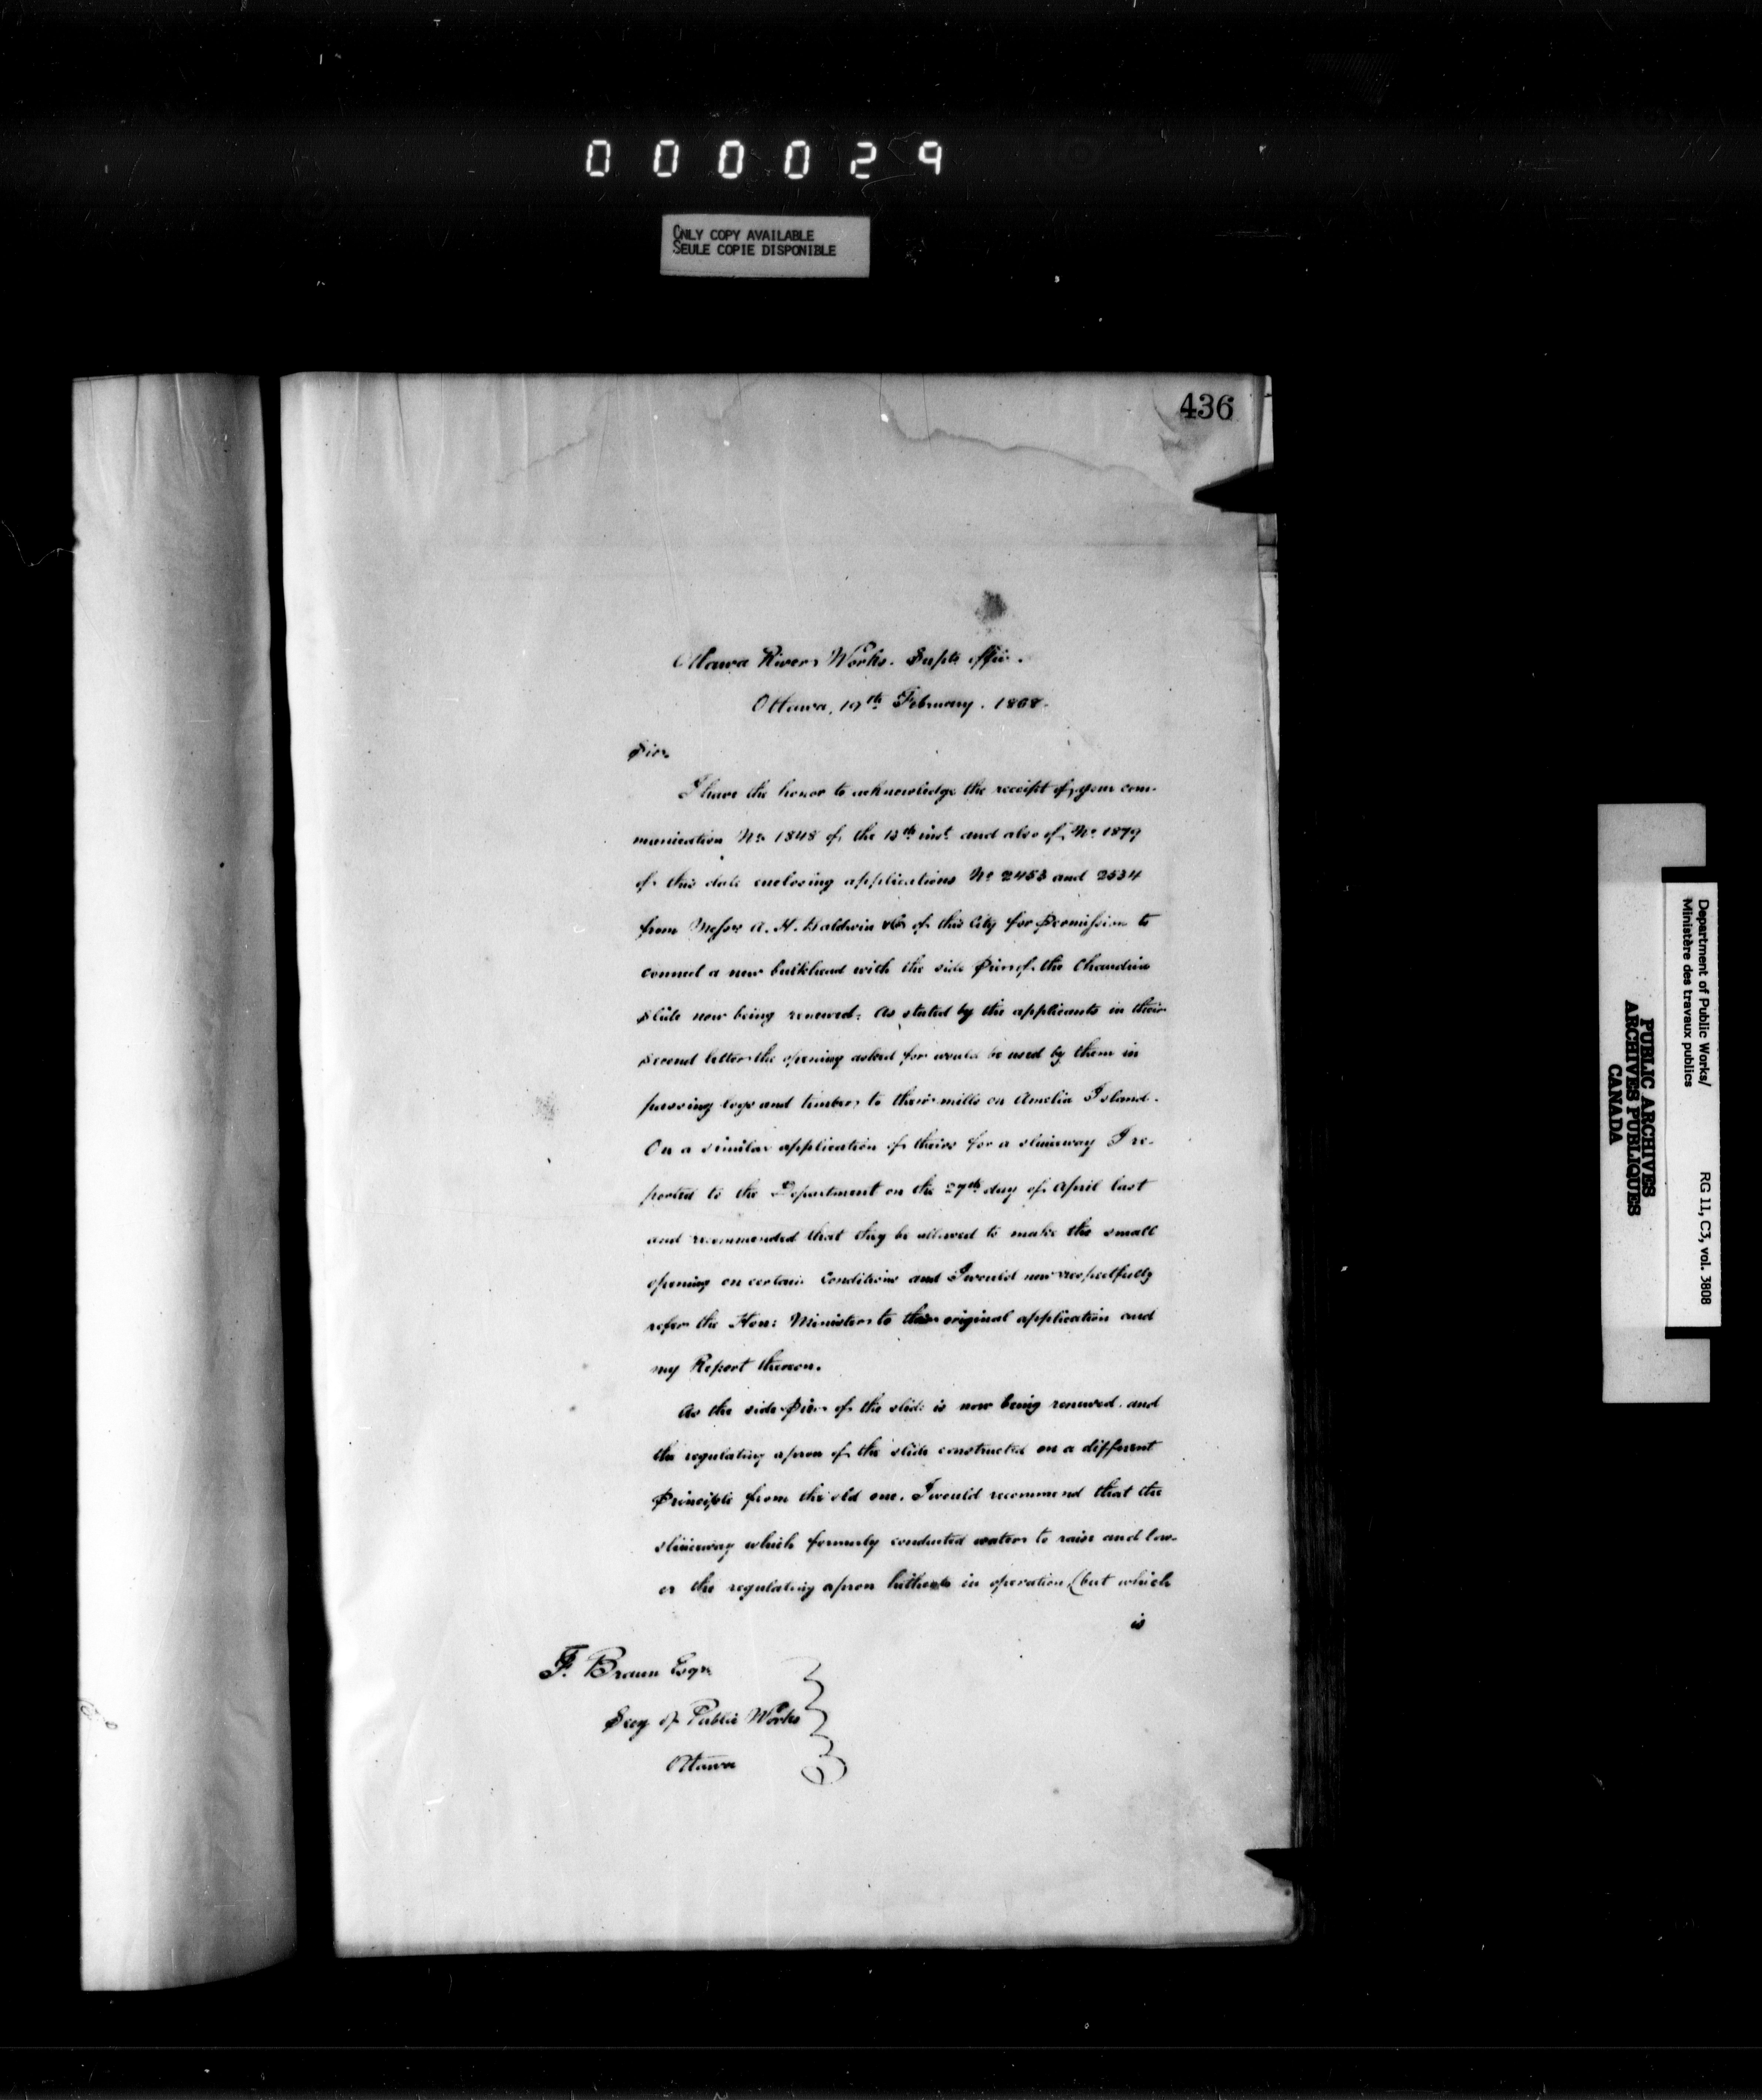 000029
ONLY COPY AVAILABLE
SEULE COPIE DISPONIBLE
436
Ottawa River Works. Supts office.
Ottawa, 19th February. 1868.
Sir,
I have the honor to acknowledge the receipt of your com-
munication No. 1848 of the 13th inst. and also of No. 1879
of this date enclosing applications No. 2453 and 2534
from Messrs A. H. Baldwin & Co of this City for Permission to
connect a new bulkhead with the side Pier of the Chaudiere
Slide now being renewed. As stated by the applicants in their
second letter the opening asked for would be used by them in
passing logs and timber to their mills on Amelia Island.
On a similar application of theirs for a sluiceway I re-
ported to the Department on the 27th day of April last
and recommended that they be allowed to make the small
opening on certain Conditions and I would now respectfully
refer the Hon: Minister to their original application and
my Report thereon.
As the side Pier of the slide is now being renewed and
the regulating apron of the slide constructed on a different
Principle from the old one. I would recommend that the
sluiceway which formerly conducted water to raise and low-
er the regulating apron hitherto in operation (but which
is
F. Braun Esqr
Secy of Public Works
Ottawa
Department of Public Works/
Ministère des travaux publics
RG 11, C3, vol. 3808
PUBLIC ARCHIVES
ARCHIVES PUBLIQUES
CANADA